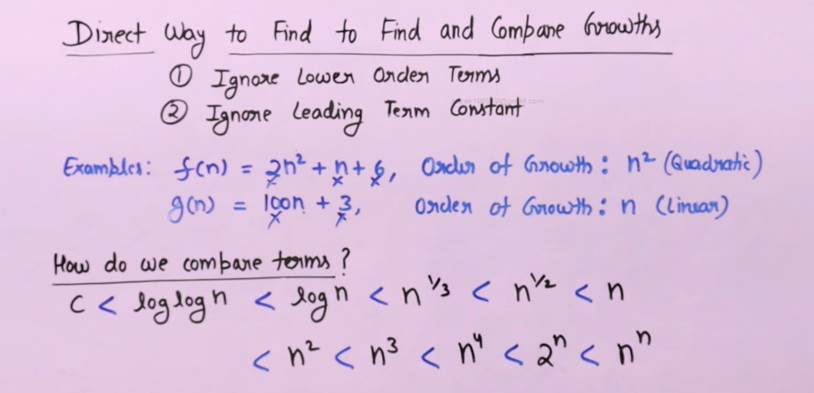 Direct Way to Find to Find and Compare Growths
① Ignore Lower Order Terms
② Ignore Leading Term Constant
Examples: f(n) = 2n² + n + 6, Order of Growth: n² (Quadratic)
g(n) = 100n + 3, Order of Growth: n (Linear)
How do we compare terms?
C < log log n < log n < n^1/3 < n^1/2 < n
< n² < n³ < n⁴ < 2ⁿ < nⁿ